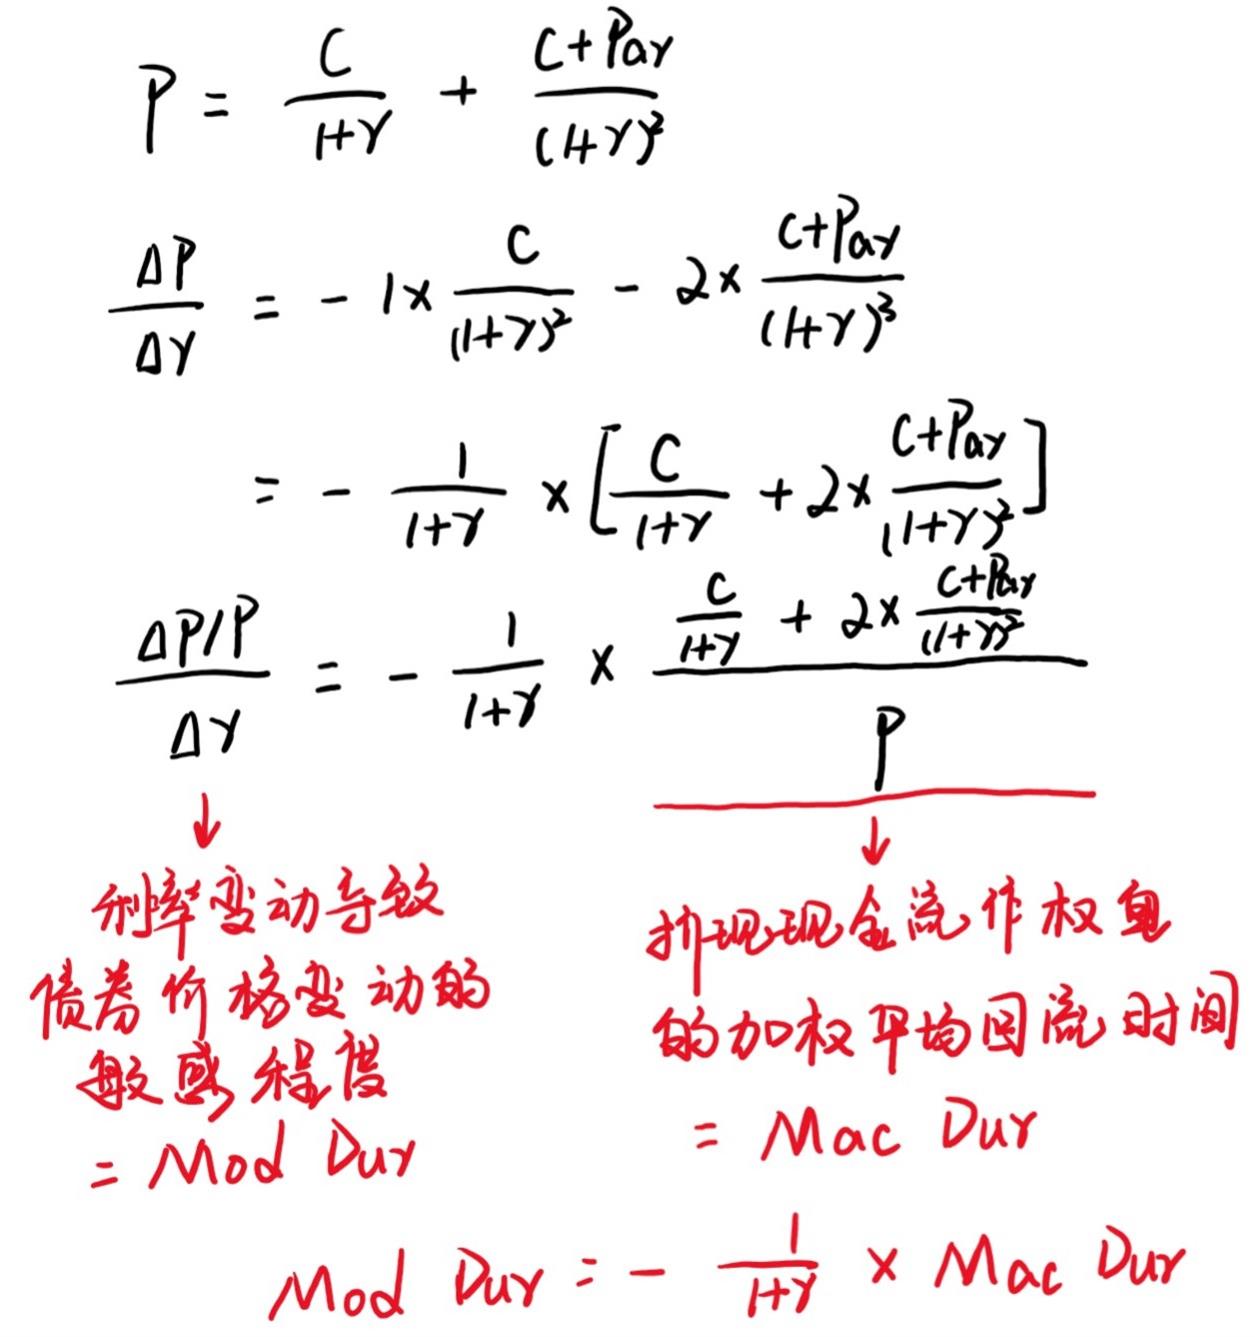 P = C/(1+r) + (C+Par)/(1+r)²
ΔP/Δr = - 1× C/(1+r)² - 2× (C+Par)/(1+r)³
= - 1/(1+r) × [C/(1+r) + 2× (C+Par)/(1+r)²]
(ΔP/P)/Δr = - 1/(1+r) × (C/(1+r) + 2× (C+Par)/(1+r)²)/P
↓
利率变动导致
债券价格变动的
敏感程度
= Mod Dur
↓
折现现金流作权重
的加权平均回流时间
= Mac Dur
Mod Dur = - 1/(1+r) × Mac Dur